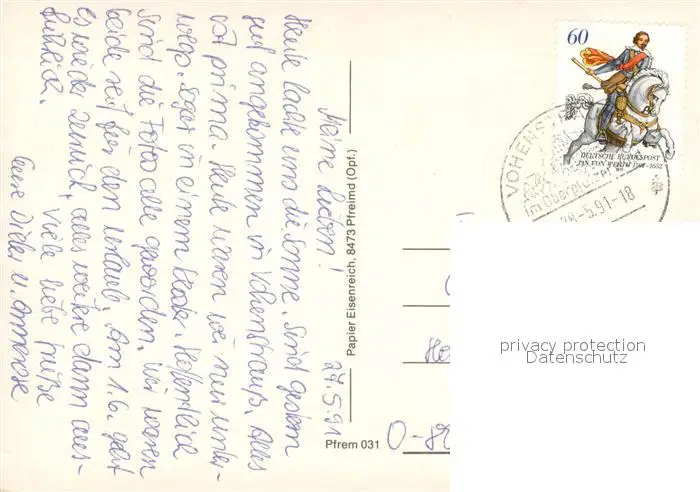 Meine Lieben!
27.5.91
Heute lacht uns die Sonne. Sind gestern
gut angekommen in Vohenstrauß. Alles
ist prima. Heute waren wir nur unter-
wegs. Sogar in einem Hoffentlich
sind die Fotos alle geworden. Wir waren
beide reif für den Urlaub. Am 1.6. geht
es wieder zurück, alles weitere dann aus-
führlich.
Viele liebe Grüße
Eure u. Annerose
Papier Eisenreich, 8473 Pfreimd (Opf.)
Pfrem 031
60
DEUTSCHE BUNDESPOST
JAN VON WERTH 1591-1652
VOHENST
im Oberpfälz
28.-5.91-18
O-89
privacy protection
Datenschutz